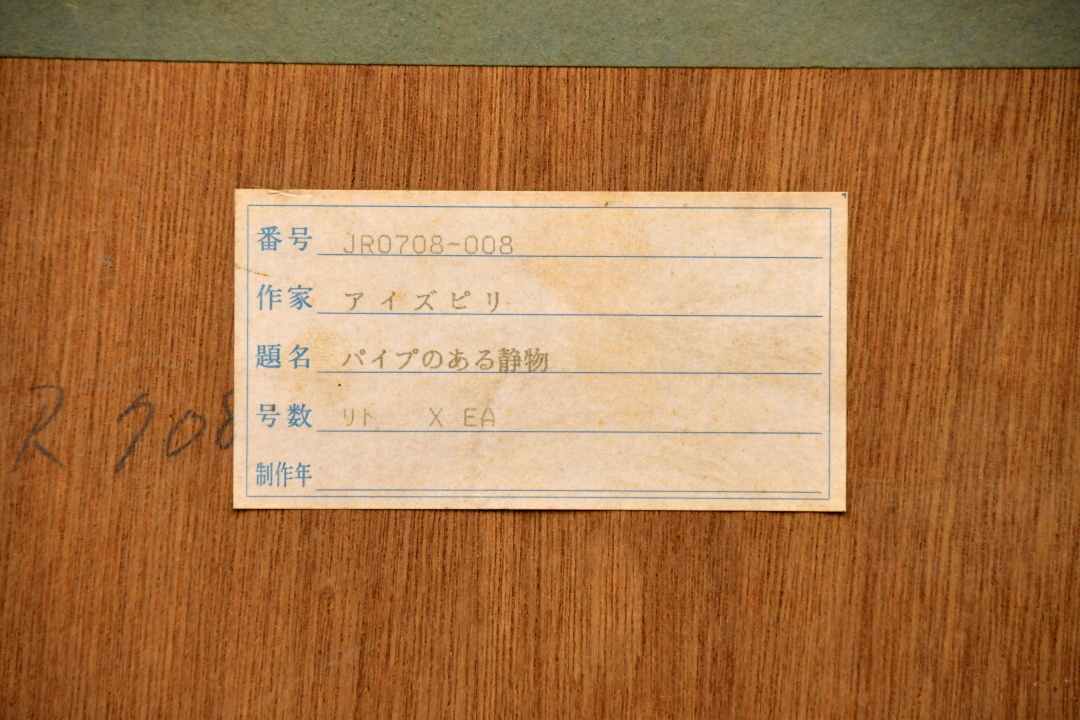 番号 JR0708-008
作家 アイズピリ
題名 パイプのある静物
号数 ﾘﾄ X EA
制作年
R 708